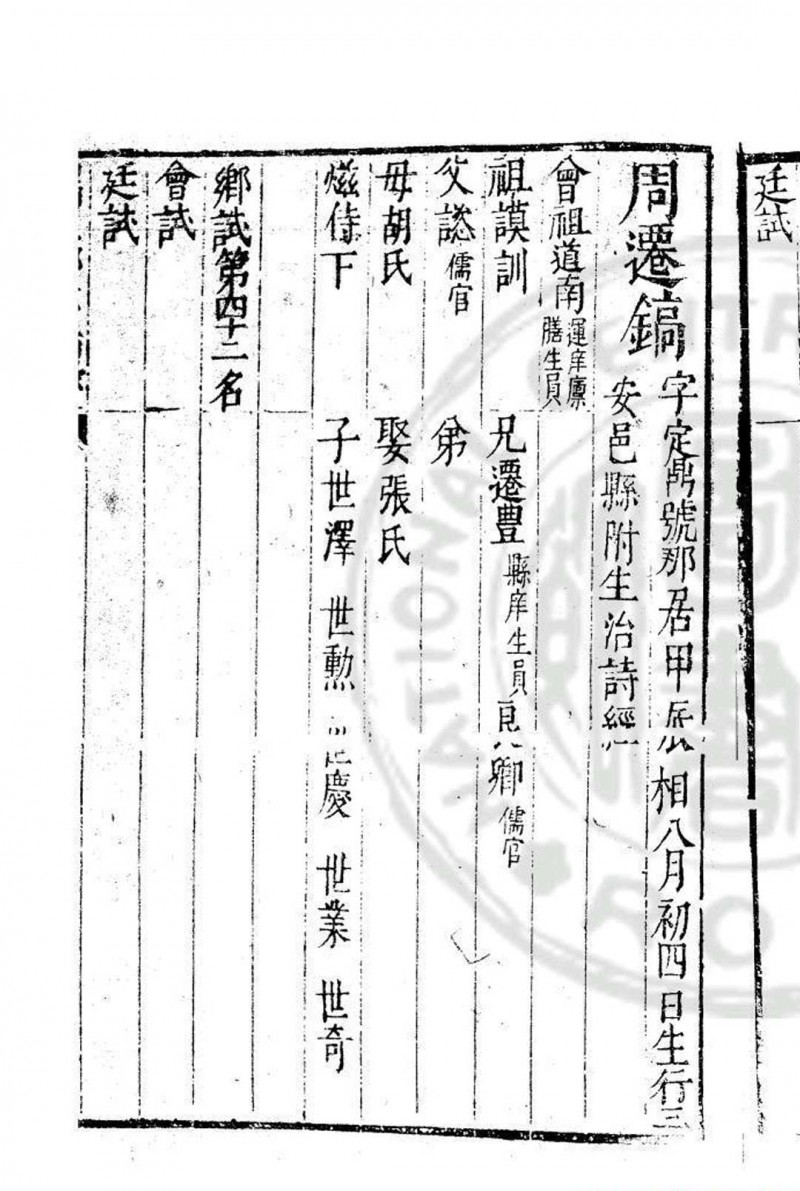 廷試
周遷鎬 字定鼎號那居甲辰相八月初四日生行三
安邑縣附生治詩經
曾祖道南 運庠廩
膳生員
祖謨訓 兄遷豊 縣庠生員 卿 儒官
父 儒官 弟
母胡氏 娶張氏
慈侍下 子世澤 世勲 慶 世業 世奇
鄉試第四十二名
會試
廷試